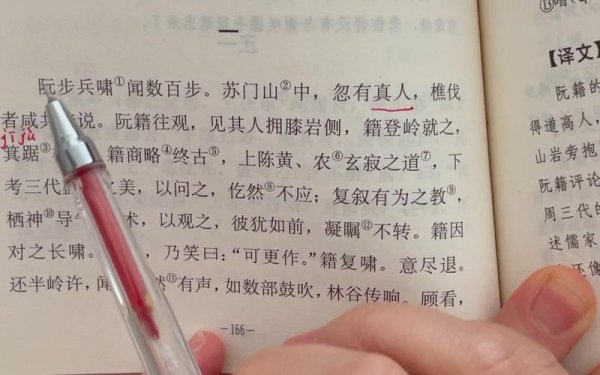 一
阮步兵啸①闻数百步。苏门山②中，忽有真人，樵伐
者咸共说。阮籍往观，见其人拥膝岩侧，籍登岭就之，
jī jù
箕踞③ 籍商略④终古⑤，上陈黄、农⑥玄寂之道⑦，下
考三代 之美，以问之，仡然⑧不应；复叙有为之教⑨，
栖神⑩导 术，以观之，彼犹如前，凝瞩⑫不转。籍因
对之长啸。 ，乃笑曰：“可更作。”籍复啸。意尽退。
还半岭许，闻 然⑬有声，如数部鼓吹，林谷传响。顾看，
—166—
【译文】
阮籍的
得道高人，
山岩旁抱
阮籍评论
周三代的
述儒家
还像